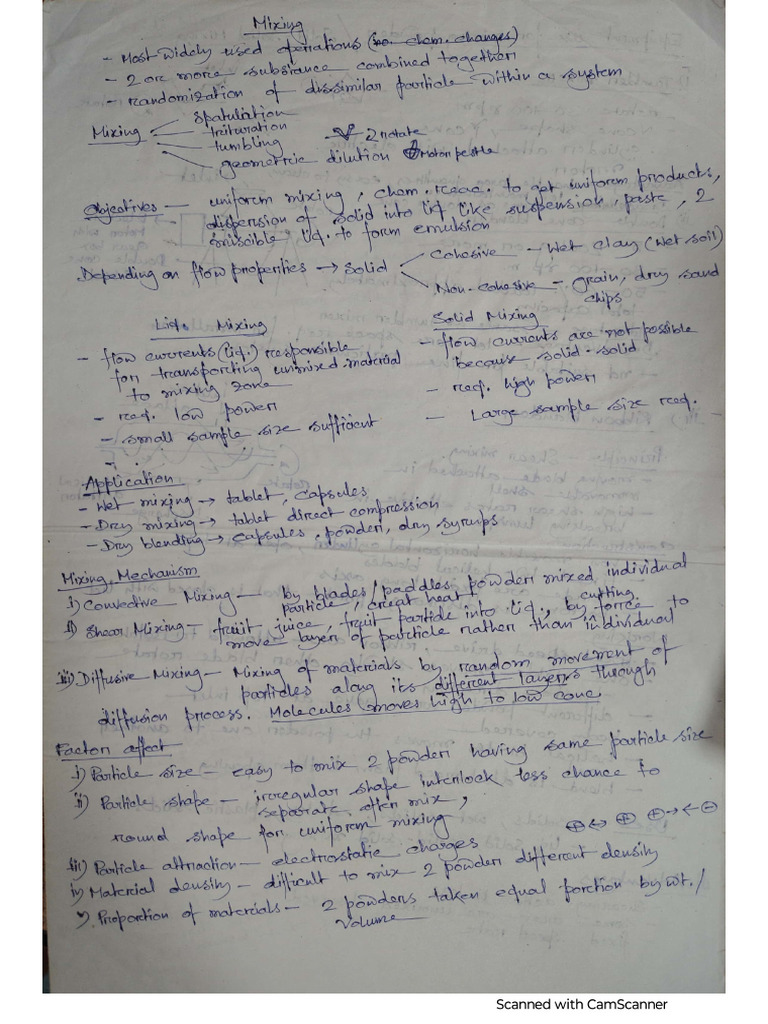 Mixing
- Most widely used operations (no chem. changes)
- 2 or more substance combined together
- randomization of dissimilar particle within a system
Mixing
spatulation
trituration
tumbling V 2 rotate
geometric dilution motor pestle
Objectives - uniform mixing, chem. reac. to get uniform products,
- dispersion of solid into liq. like suspension, paste, 2
miscible liq. to form emulsion
Depending on flow properties → solid
Cohesive - Wet clay (wet soil)
Non-cohesive - grain, dry sand
chips
Liq. Mixing
- flow currents (liq.) responsible
for transporting unmixed material
to mixing zone
- req. low power
- small sample size sufficient
-
Solid Mixing
- flow currents are not possible
because solid-solid
- req. high power
- Large sample size req.
Application
- Wet mixing → tablet, capsules
- Dry mixing → tablet direct compression
- Dry blending → capsules, powder, dry syrups
Mixing Mechanism
i) Convective Mixing - by blades/paddles powder mixed individual
particle, creat heat
cutting.
ii) Shear Mixing - fruit juice, fruit particle into liq., by force to
move layer of particle rather than individual
iii) Diffusive Mixing - Mixing of materials by random movement of
particles along its different layers through
diffusion process. Molecules moves high to low conc.
Factor affect
i) Particle size - easy to mix 2 powder having same particle size
ii) Particle shape - irregular shape interlock less chance to
separate after mix,
round shape for uniform mixing
⊕↔⊕ ⊕→←⊖
iii) Particle attraction - electrostatic charges
iv) Material density - difficult to mix 2 powder different density
v) Proportion of materials - 2 powders taken equal portion by wt./
volume
Scanned with CamScanner